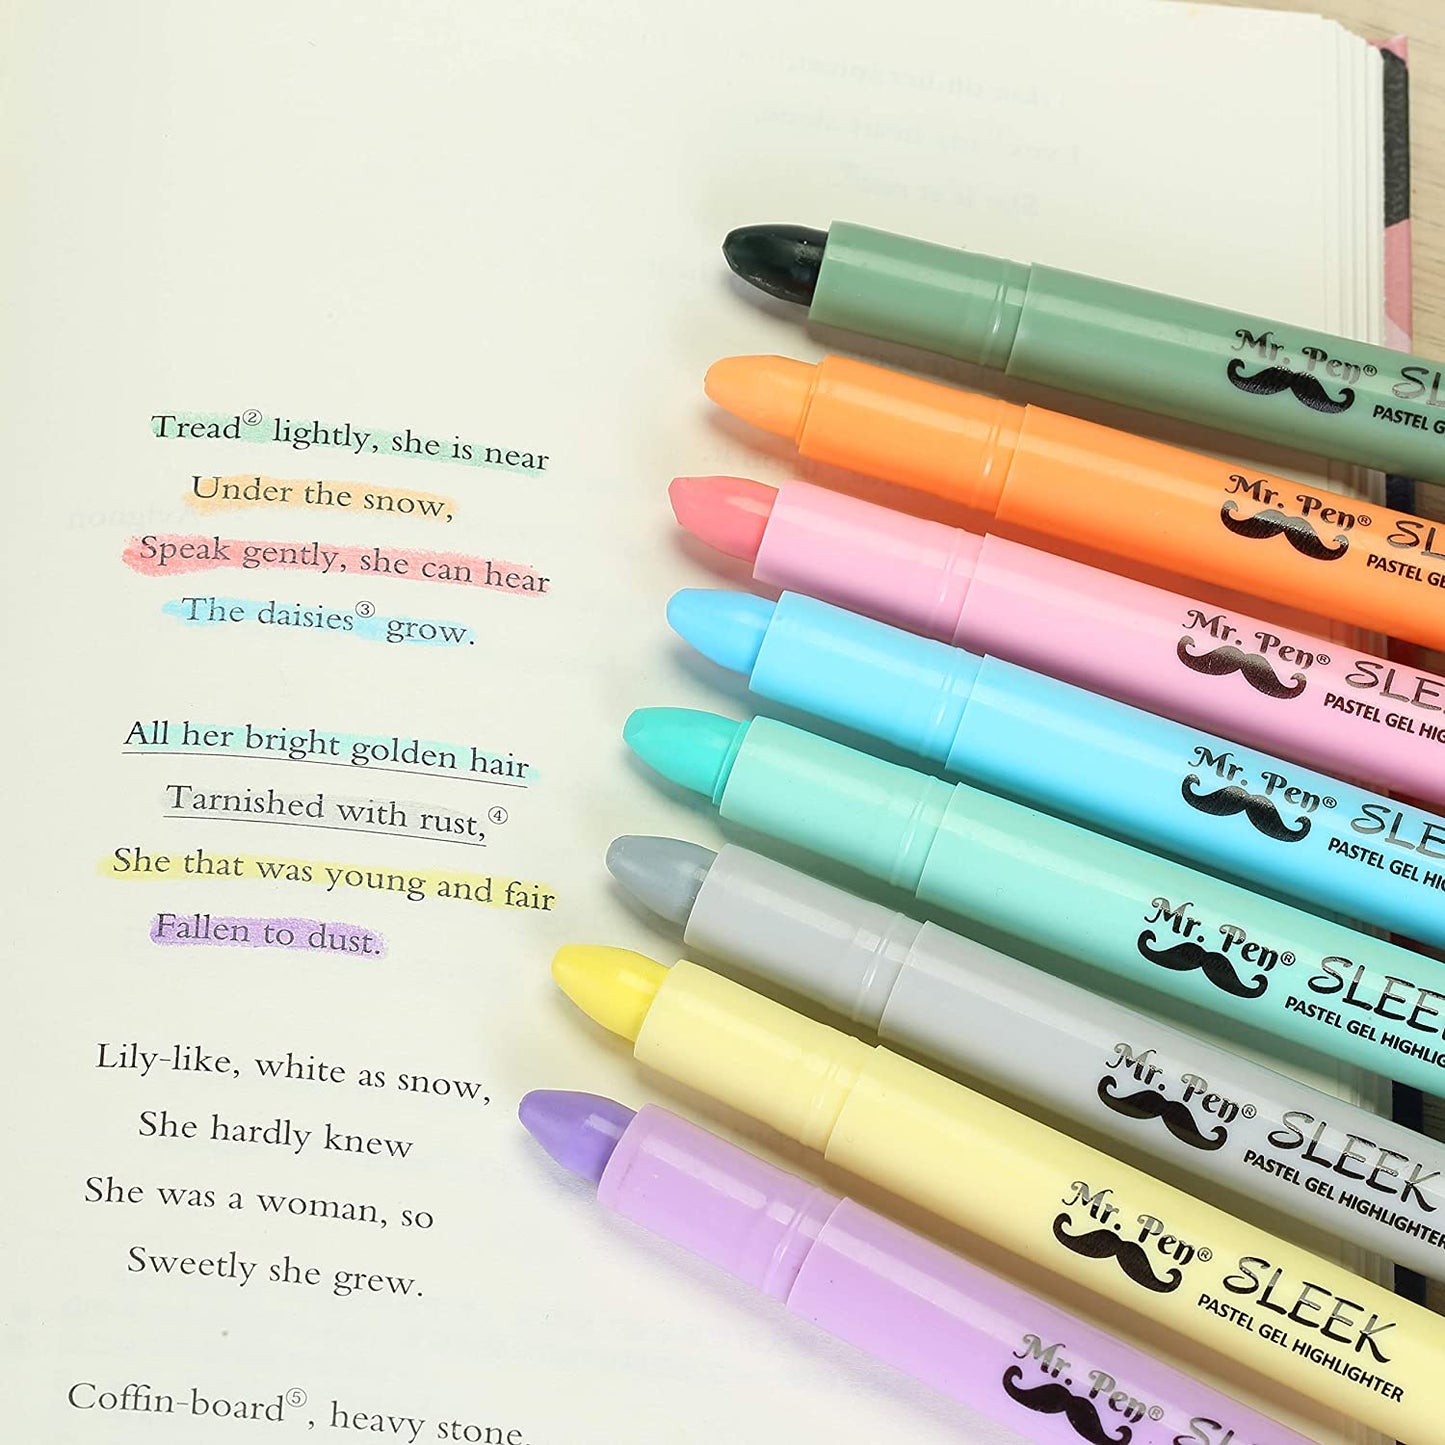 Tread② lightly, she is near
Under the snow,
Speak gently, she can hear
The daisies③ grow.
All her bright golden hair
Tarnished with rust,④
She that was young and fair
Fallen to dust.
Lily-like, white as snow,
She hardly knew
She was a woman, so
Sweetly she grew.
Coffin-board⑤, heavy stone,
Mr. Pen®
PASTEL
Mr. Pen®
PASTEL
Mr. Pen®
PASTEL GEL
Mr. Pen®
PASTEL GEL
Mr. Pen® SLEEK
PASTEL GEL
Mr. Pen® SLEEK
PASTEL GEL HIGHLIGHTER
Mr. Pen® SLEEK
PASTEL GEL HIGHLIGHTER
Mr. Pen®